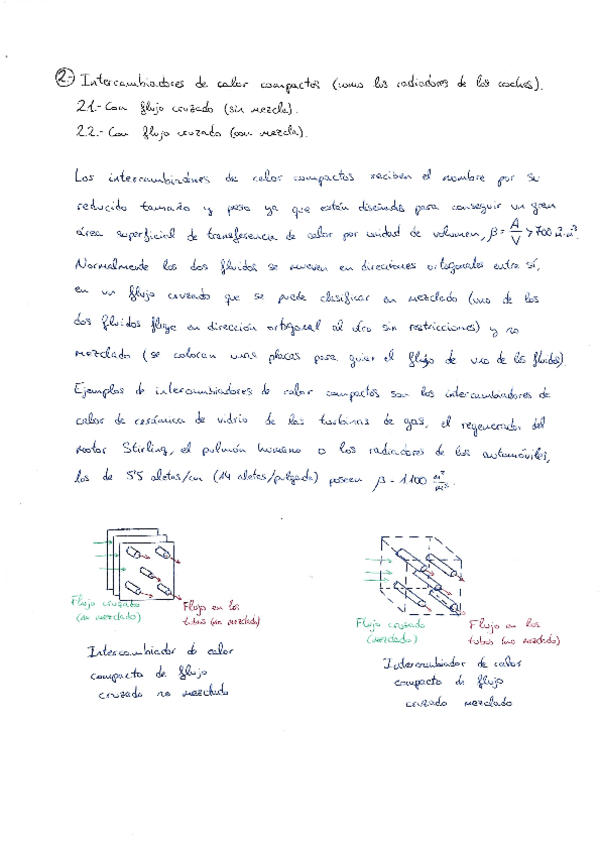 2.- Intercambiadores de calor compactos (como los radiadores de los coches).
2.1.- Con flujo cruzado (sin mezcla).
2.2.- Con flujo cruzado (con mezcla).
Los intercambiadores de calor compactos reciben el nombre por su
reducido tamaño y peso ya que están diseñados para conseguir un gran
área superficial de transferencia de calor por unidad de volumen, β = A/V > 700 m²·m⁻³.
Normalmente los dos fluidos se mueven en direcciones ortogonales entre sí,
en un flujo cruzado que se puede clasificar en mezclado (uno de los
dos fluidos fluye en dirección ortogonal al otro sin restricciones) y no
mezclado (se colocan unas placas para guiar el flujo de uno de los fluidos).
Ejemplos de intercambiadores de calor compactos son los intercambiadores de
calor de cerámica de vidrio de las turbinas de gas, el regenerador del
motor Stirling, el pulmón humano o los radiadores de los automóviles,
los de 5'5 aletas/cm (14 aletas/pulgada) poseen β - 1100 m²/m³.
Flujo cruzado
(no mezclado)
Flujo en los
tubos (no mezclado)
Intercambiador de calor
compacto de flujo
cruzado no mezclado
Flujo cruzado
(mezclado)
Flujo en los
tubos (no mezclado)
Intercambiador de calor
compacto de flujo
cruzado mezclado